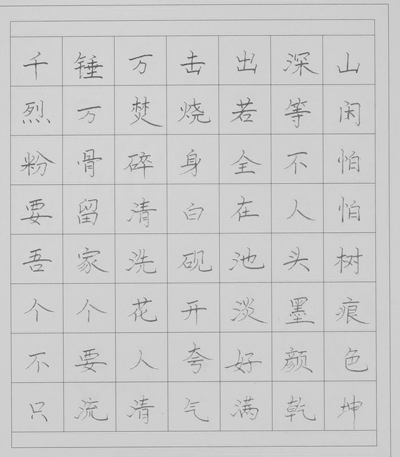 千锤万击出深山
烈万焚烧若等闲
粉骨碎身全不怕
要留清白在人怕
吾家洗砚池头树
个个花开淡墨痕
不要人夸好颜色
只流清气满乾坤